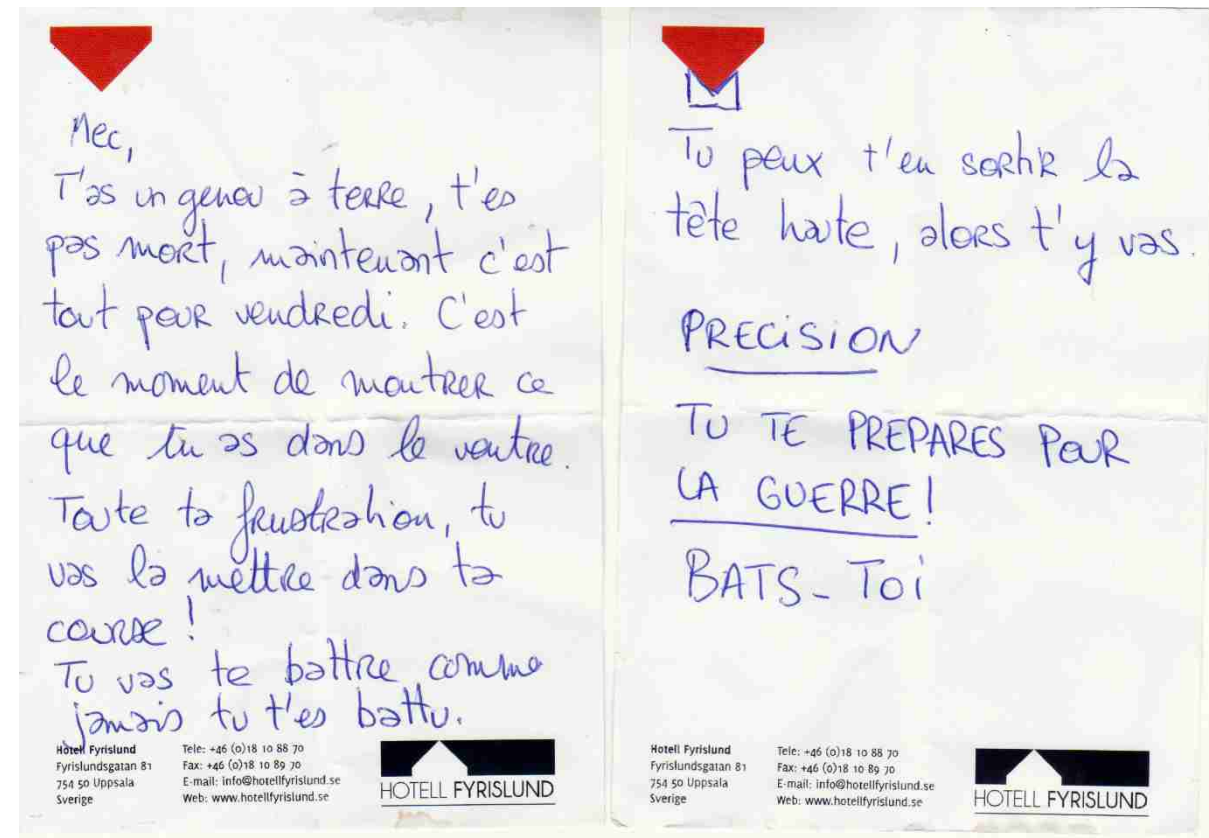 Mec,
T'as un genou à terre, t'es
pas mort, maintenant c'est
tout pour vendredi. C'est
le moment de montrer ce
que tu as dans le ventre.
Toute ta frustration, tu
vas la mettre dans ta
course !
Tu vas te battre comme
jamais tu t'es battu.
Hotell Fyrislund
Fyrislundsgatan 81
754 50 Uppsala
Sverige
Tele: +46 (0)18 10 88 70
Fax: +46 (0)18 10 89 70
E-mail: info@hotellfyrislund.se
Web: www.hotellfyrislund.se
HOTELL FYRISLUND
Tu peux t'en sortir la
tête haute, alors t'y vas.
PRECISION
TU TE PREPARES POUR
LA GUERRE!
BATS-TOI
Hotell Fyrislund
Fyrislundsgatan 81
754 50 Uppsala
Sverige
Tele: +46 (0)18 10 88 70
Fax: +46 (0)18 10 89 70
E-mail: info@hotellfyrislund.se
Web: www.hotellfyrislund.se
HOTELL FYRISLUND